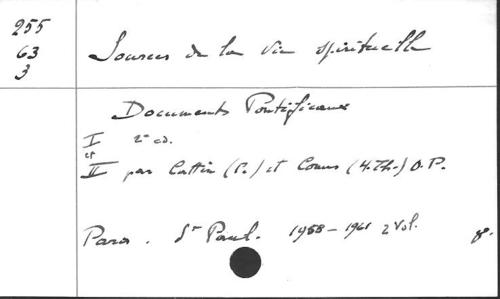 255
63
3
Sources de la vie spirituelle
Documents Pontificaux
I 2e ed.
et
II par Cattin (P.) et Conus (H.Th.) O.P.
Paris. St Paul. 1958-1961 2 Vol. 8°.